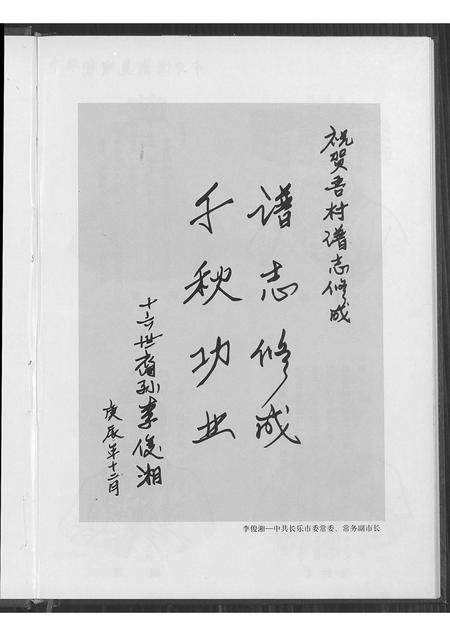 祝贺吾村谱志修成
谱志修成
千秋功业
十六世裔孙李俊湘
庚辰年十二月
李俊湘—中共长乐市委常委、常务副市长